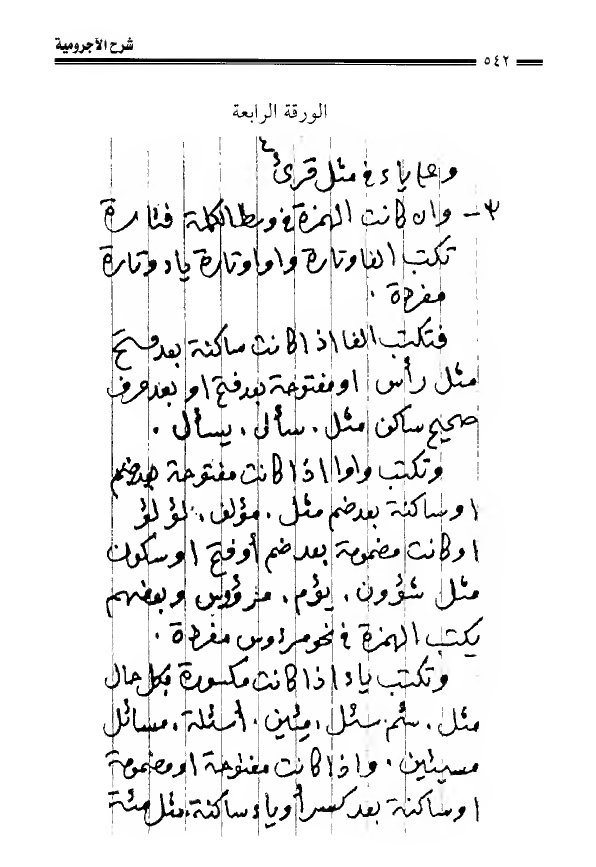 شرح الآجرومية
٥٤٢
الورقة الرابعة
وعلى ياء في مثل قرئ
٣- وان كانت الهمزة في وسط الكلمة فتارة
تكتب الفا وتارة واوا وتارة ياء وتارة
مفردة .
فتكتب الفا اذا كانت ساكنة بعد فتح
مثل رأس او مفتوحة بعد فتح او بعد حرف
صحيح ساكن مثل . سأل . يسأل .
وتكتب واوا اذا كانت مفتوحة بعد ضم
او ساكنة بعد ضم مثل . مؤلف . لؤلؤ
او كانت مضمومة بعد ضم أو فتح او سكون
مثل شؤون . يؤم . مرؤوس وبعضهم
يكتب الهمزة في نحو مرءوس مفردة .
وتكتب ياء اذا كانت مكسورة بكل حال
مثل . سئم سئل . مئين . أسئلة . مسائل
مسيئين . واذا كانت مفتوحة او مضمومة
او ساكنة بعد كسر أو ياء ساكنة . مثل مئة